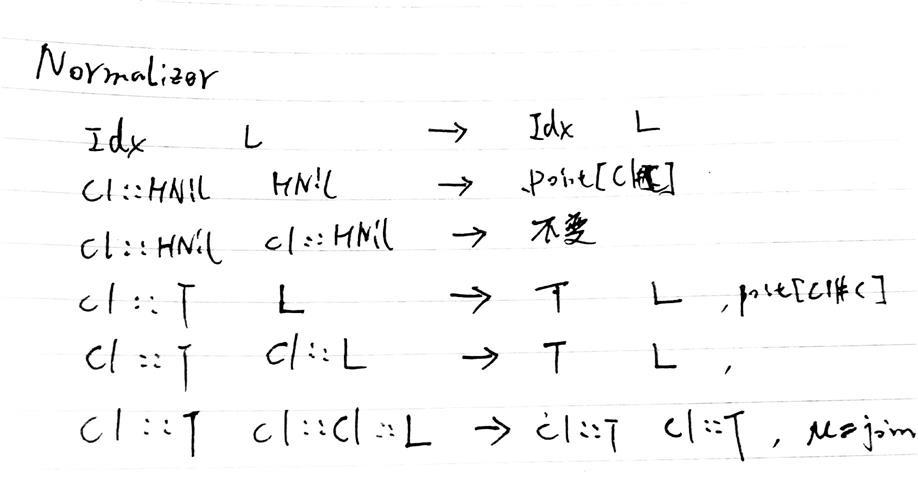 Normalizer
Idx L → Idx L
Cl::HNil HNil → point[Cl]
Cl::HNil cl::HNil → 不変
cl::T L → T L , point[cl#c]
Cl::T Cl::L → T L ,
Cl::T cl::Cl::L → cl::T Cl::T , μ=join